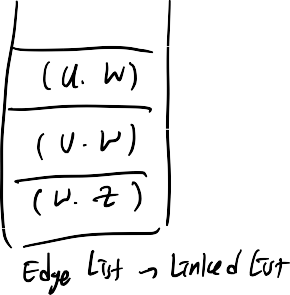 (U. W)
(U. W)
(W. Z)
Edge List → Linked List